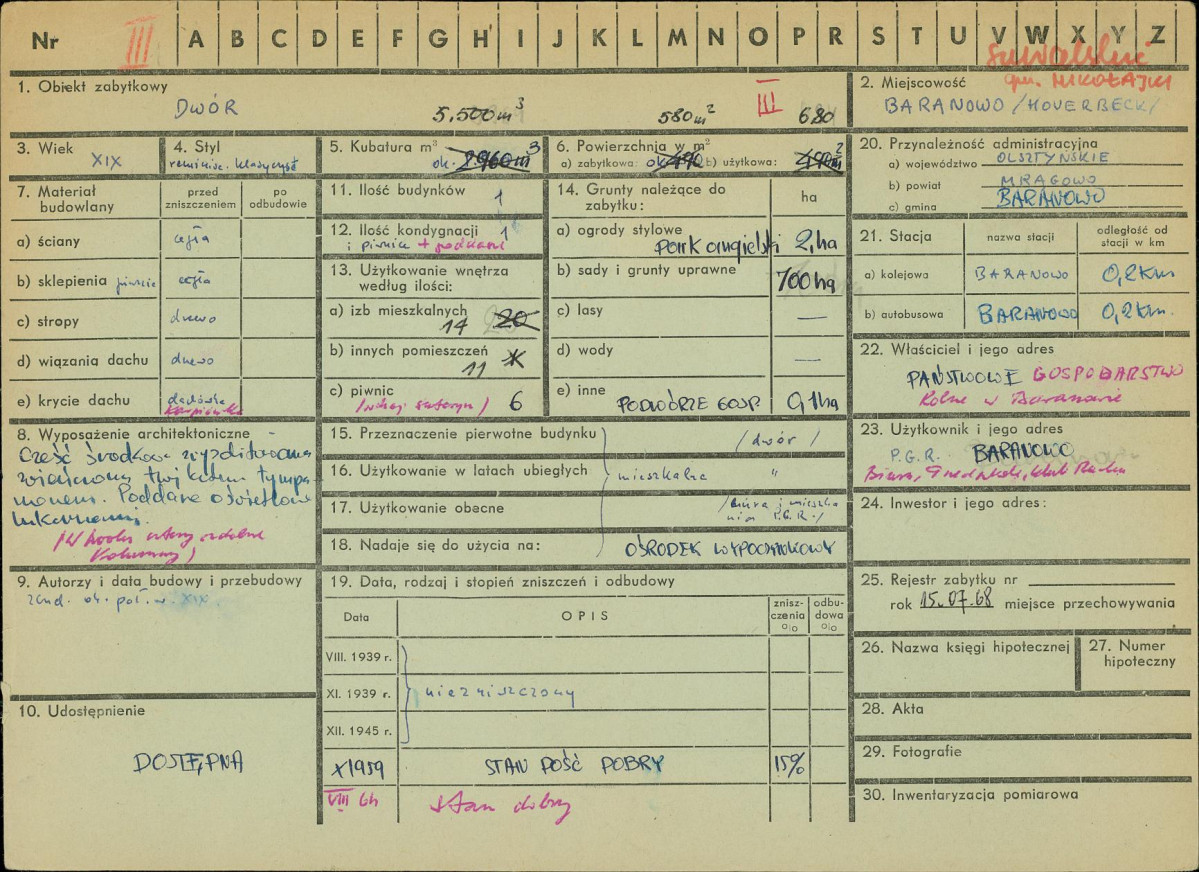 Nr III A B C D E F G H I J K L M N O P R S T U V W X Y Z
suwalskie
gm. MIKOŁAJKI
1. Obiekt zabytkowy
DWÓR
5,500 m³ 580 m² III 680
2. Miejscowość
BARANOWO /HOVERBECK/
3. Wiek XIX
4. Styl
reminisc. klasycyst
5. Kubatura m³
ok. 2.960 m³
6. Powierzchnia w m²
a) zabytkowa: ok. 490 b) użytkowa: 490 m²
20. Przynależność administracyjna
a) województwo OLSZTYŃSKIE
b) powiat MRĄGOWO
c) gmina BARANOWO
7. Materiał budowlany
przed zniszczeniem
po odbudowie
a) ściany cegła
b) sklepienia piwnic cegła
c) stropy drewno
d) wiązania dachu drewno
e) krycie dachu dachówka
karpiówka
11. Ilość budynków 1
12. Ilość kondygnacji 1
i piwnice + poddasze
13. Użytkowanie wnętrza
według ilości:
a) izb mieszkalnych 20
14
b) innych pomieszczeń
11
c) piwnic 6
14. Grunty należące do
zabytku: ha
a) ogrody stylowe
park angielski 2, ha
b) sady i grunty uprawne 700 ha
c) lasy —
d) wody —
e) inne PODWÓRZE GOSP. 0,1 ha
21. Stacja
nazwa stacji
odległość od stacji w km
a) kolejowa BARANOWO 0,2 km
b) autobusowa BARANOWO 0,2 km.
22. Właściciel i jego adres
PAŃSTWOWE GOSPODARSTWO
Rolne w Baranowie
23. Użytkownik i jego adres
P.G.R. BARANOWO
Biura, Przedszkole, klub Ruchu
24. Inwestor i jego adres:
8. Wyposażenie architektoniczne
Część środkow. wypolitowana
zwieńczona trójkątem tympa
nonem. Poddasze oświetlow
lukarnami.
kolumny)
15. Przeznaczenie pierwotne budynku /dwór/
16. Użytkowanie w latach ubiegłych mieszkalne "
17. Użytkowanie obecne /biura i mieszka
nia P.G.R./
18. Nadaje się do użycia na: OŚRODEK WYPOCZYNKOWY
9. Autorzy i data budowy i przebudowy
zbud. ok. poł. w. XIX
19. Data, rodzaj i stopień zniszczeń i odbudowy
Data
OPIS
zniszczenia %
odbudowa %
VIII. 1939 r.
XI. 1939 r. niezniszczony
XII. 1945 r.
X 1959 STAN DOŚĆ DOBRY 15%
VIII 64 stan dobry
10. Udostępnienie
DOSTĘPNA
25. Rejestr zabytku nr
rok 15.07.68 miejsce przechowywania
26. Nazwa księgi hipotecznej
27. Numer hipoteczny
28. Akta
29. Fotografie
30. Inwentaryzacja pomiarowa